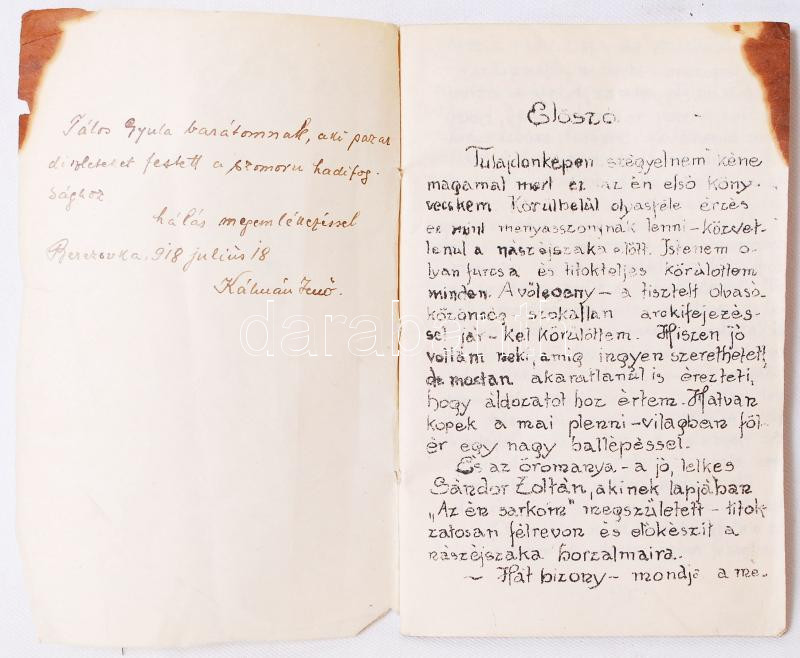 Tálos Gyula barátomnak, aki pazar
diszleteket festett a szomoru hadifog-
sághoz
hálás megemlékezéssel
Berezovka, 918 július 18
Kálmán Jenő.
Előszó.
Tulajdonképen szégyelnem kéne
magamat mert ez az én első köny-
vecském Körülbelül olyasféle érzés
ez mint menyasszonynak lenni - közvet-
lenül a nászéjszaka előtt. Istenem o-
lyan furcsa és titokteljes körülöttem
minden. A vőlegény - a tisztelt olvasó-
közönség szokatlan arckifejezés-
sel jár - kel körülöttem. Hiszen jó
voltam neki, amíg ingyen szerethetett,
de mostan akaratlanul is érezteti,
hogy áldozatot hoz értem. Hatvan
kopek a mai plenni - világban föl-
ér egy nagy ballépéssel.
És az örömanya - a jó, lelkes
Sándor Zoltán, akinek lapjában
„Az én sarkom" megszületett - titok-
zatosan félrevon és előkészít a
nászéjszaka borzalmaira.
- Hát bizony - mondja a me-
darabanth